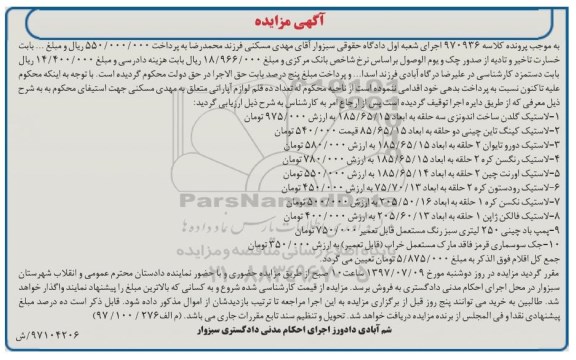 آگهی مزایده
به موجب پرونده کلاسه ۹۷۰۹۳۶ اجرای شعبه اول دادگاه حقوقی سبزوار آقای مهدی مسکنی فرزند محمدرضا به پرداخت ۵۵۰/۰۰۰/۰۰۰ ریال و مبلغ ... بابت
خسارت تاخیر و تادیه از صدور چک و یوم الوصول براساس نرخ شاخص بانک مرکزی و مبلغ ۱۸/۹۶۶/۰۰۰ ریال بابت هزینه دادرسی و مبلغ ۱۴/۴۰۰/۰۰۰ ریال
بابت دستمزد کارشناسی در علیرضا درگاه آبادی فرزند اسدا... و پرداخت مبلغ پنج درصد بابت حق الاجرا در حق دولت محکوم گردیده است. با توجه به اینکه محکوم
علیه تاکنون نسبت به پرداخت بدهی خود اقدامی ننموده است از ناحیه محکوم له تعداد ده قلم لوازم آپاراتی متعلق به مهدی مسکنی جهت استیفای محکوم به به شرح
ذیل معرفی که از طریق دایره اجرا توقیف گردیده است پس از ارجاع امر به کارشناس به شرح ذیل ارزیابی گردید:
۱-لاستیک گلدن ساخت اندونزی سه حلقه به ابعاد ۱۸۵/۶۵/۱۵ به ارزش ۹۷۵/۰۰۰ تومان
۲-لاستیک کینگ تاین چینی دو حلقه به ابعاد ۸۵/۶۵/۱۵ قیمت ۵۴۰/۰۰۰ تومان
۳-لاستیک دورو تایوان ۲ حلقه به ابعاد ۱۸۵/۶۵/۱۵ به ارزش ۵۸۰/۰۰۰ تومان
۴-لاستیک رنگسن کره ۲ حلقه به ابعاد ۱۸۵/۶۵/۱۵ به ارزش ۷۸۰/۰۰۰ تومان
۵-لاستیک اورنت چین ۲ حلقه به ابعاد ۱۸۵/۶۵/۱۴ به ارزش ۵۵۰/۰۰۰ تومان
۶-لاستیک رودستون کره ۲ حلقه به ابعاد ۷۵/۷۰/۱۳ به ارزش ۴۵۰/۰۰۰ تومان
۷-لاستیک نکسن کره ۱ حلقه به ابعاد ۲۰۵/۵۰/۱۶ به ارزش ۵۰۰/۰۰۰ تومان
۸-لاستیک فالکن ژاپن ۱ حلقه به ابعاد ۲۰۵/۶۰/۱۳ به ارزش ۴۰۰/۰۰۰ تومان
۹-پمپ باد چینی ۲۵۰ لیتری سبز رنگ مستعمل قابل تعمیر ۷۵۰/۰۰۰ تومان
۱۰-جک سوسماری قرمز فاقد مارک مستعمل خراب (قابل تعمیر) به ارزش ۳۵۰/۰۰۰ تومان
جمع کل اقلام فوق الذکر به مبلغ ۵/۸۷۵/۰۰۰ تومان تعیین می گردد.
مقرر گردید مزایده در روز دوشنبه مورخ ۱۳۹۷/۰۷/۰۹ ساعت ۱۰ صبح از طریق مزایده حضوری و با حضور نماینده دادستان محترم عمومی و انقلاب شهرستان
سبزوار در محل اجرای احکام مدنی دادگستری به فروش برسد. مزایده از قیمت کارشناسی شده شروع و به کسانی که بالاترین مبلغ را پیشنهاد نمایند واگذار خواهد
شد. طالبین به خرید می توانند پنج روز قبل از برگزاری مزایده به این اجرا مراجعه تا ترتیب بازدیدشان از اموال مذکور داده شود. قابل ذکر است ده درصد مبلغ
پیشنهادی نقدا و فی المجلس از برنده مزایده دریافت خواهد شد. تحویل و تنظیم سند تابع مقررات جاری می باشد. (م الف ۲۷۶ / ۱۰۰ / ۹۷)
شم آبادی دادورز اجرای احکام مدنی دادگستری سبزوار
۹۷۱۰۴۲۰۶/ش
ParsNamadData